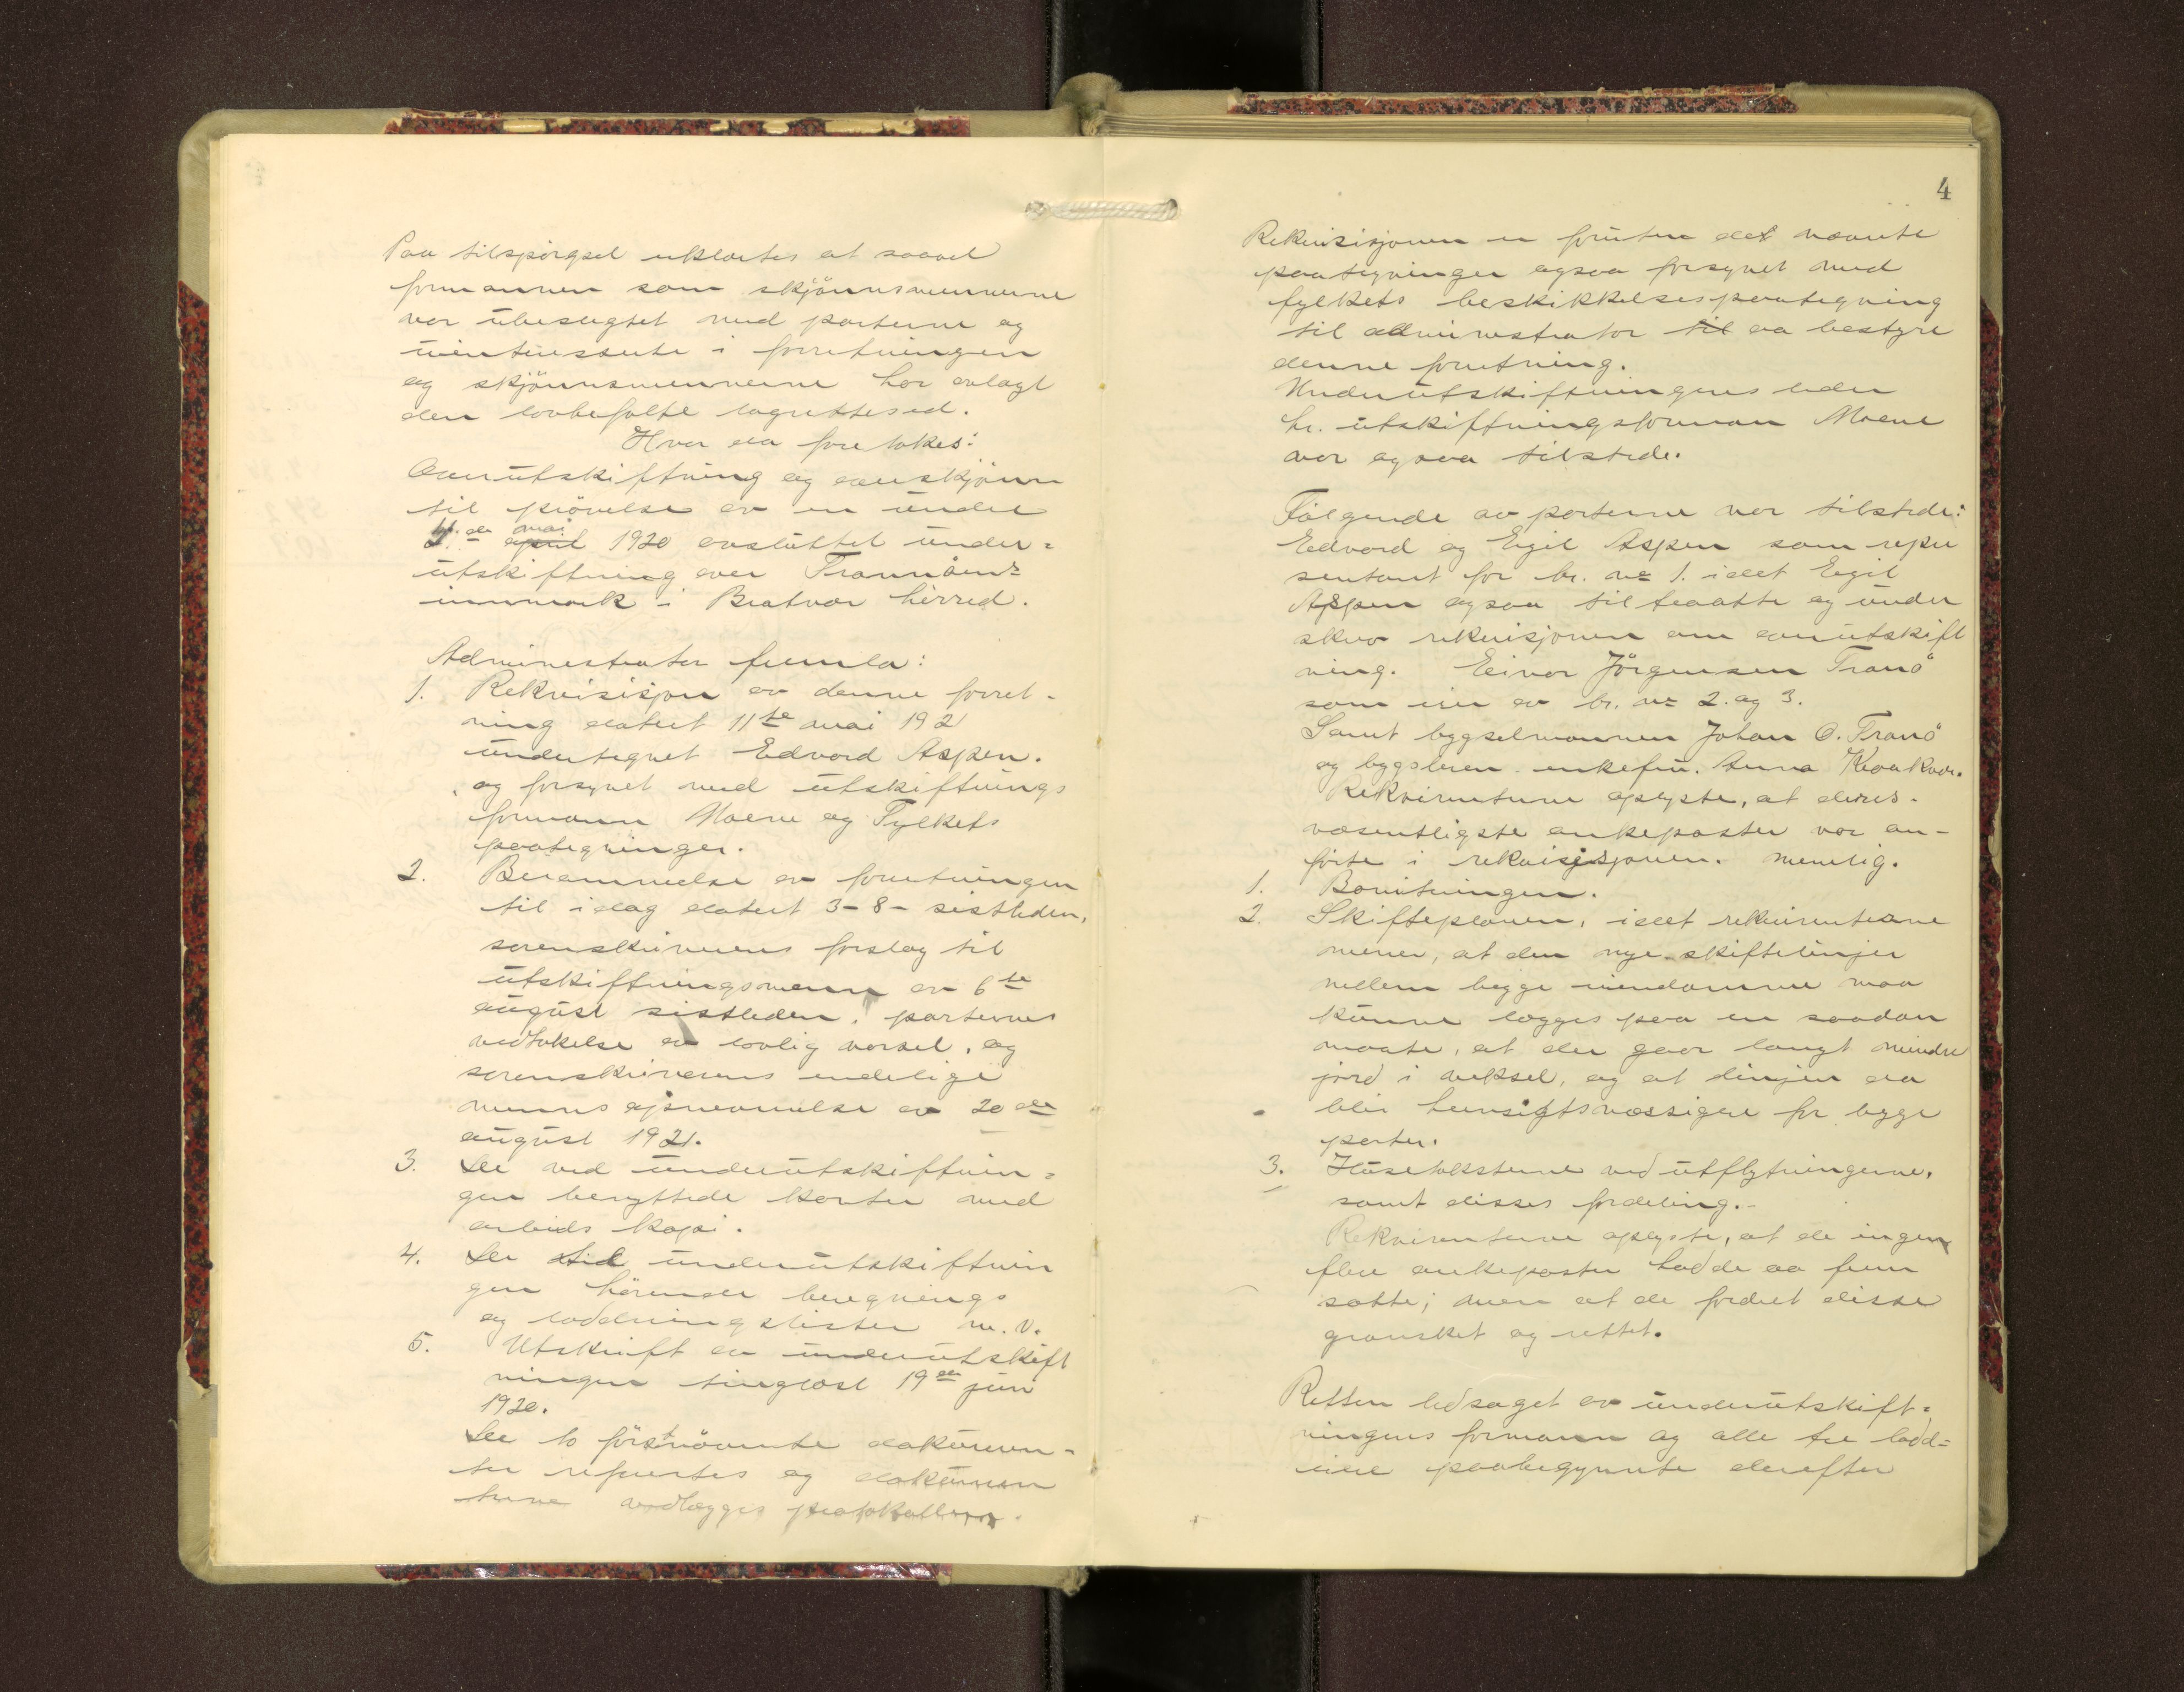 Paa tilspörgsel erklærtes at saavel
formannen som skjönnsmennerne
var ubeslegtet med parterne og
uinteressente i forretningen
og skjönnsmennerne har avlagt
den lovbefalte lagrettesed.
Hvor da foretokes:
Overutskiftning og overskjönn
til prövelse av en under
4.de mai april 1920 avsluttet under=
utskiftning over Trannöens
innmark i Bratvær herred.
Administrator fremla:
1. Rekvisisjon av denne forret-
ning datert 11te mai 1921
undertegnet Edvard Aspen.
og forsynet med utskiftnings
formann Moene og Fylkets
paategninger.
2. Berammelse av forretningen
til idag datert 3-8- sistleden,
sorenskriverens forslag til
utskiftningsmenn av 6te
august sistleden, parternes
vedtakelse av lovlig varsel, og
sorenskriverens endelige
menns opnevnelse av 20de
august 1921.
3. De ved underutskiftnin=
gen benyttede karter med
arbeids kopi.
4. De til underutskiftnin
gen hörende beregnings
og loddningslister m.v.
5. Utskrift av underutskift
ningen tinglæst 19de juni
1920.
De to förstnævnte dokumen-
ter refertes og dokumen
terne vedlægges protokollen.
4
Rekvisisjonen er foruten de nævnte
paategninger ogsaa forsynet med
fylkets beskikkelsespaategning
til administrator til aa bestyre
denne forretning.
Underutskiftningens leder
hr. utskiftningsformann Moene
var ogsaa tilstede.
Fölgende av parterne var tilstede:
Edvard og Egil Aspen som repre
sentant for br. no 1. idet Egil
Aspen ogsaa tiltraatte og under
skrev rekvisjonen om overutskift
ning. Einar Jörgensen Tranö
som eier av br. no 2. og 3.
Samt bygselmannen Johan O. Tranö
og bygsleren enkefru. Anna Kvakvær.
Rekvirenterne oplyste, at deres
væsentligste ankeposter var an-
förte i rekvisisjonen. nemlig.
1. Boniteringen.
2. Skifteplanen, idet rekvirenterne
mener, at den nye skiftelinjer
mellem begge eiendomme maa
kunne lægges paa en saadan
maate, at der gaar langt mindre
jord i veksel, og at linjen da
blir hensigtsmæssigere for begge
parter.
3. Husetakterne ved utflytningerne,
samt disses fordeling.-
Rekvirenterne oplyste, at de ingen
flere ankeposter hadde aa frem
sætte; men at de fordret disse
gransket og rettet.
Retten ledsaget av underutskift=
ningens formann og alle tre lodd=
eiere paabegynnte derefter